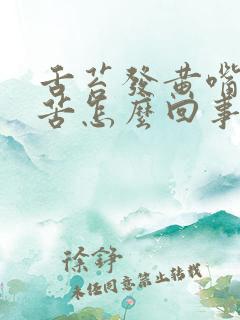 舌苔發黄嘴
苦怎麼回事
徐錚
未經同意禁止轉載